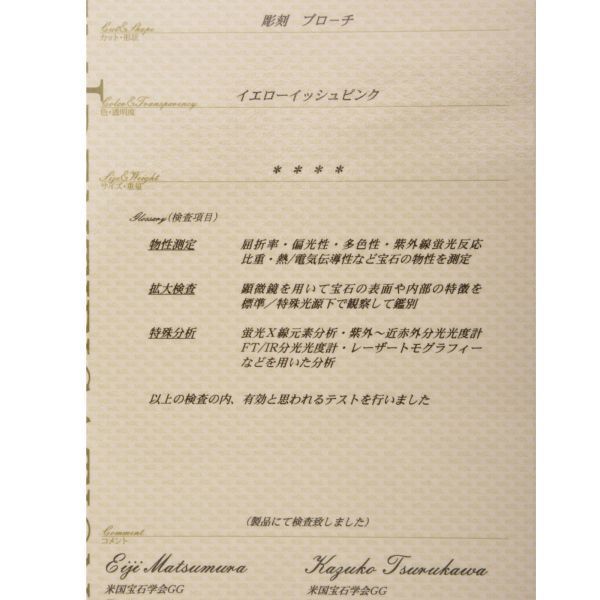 彫刻 ブローチ
Cut&Shape
カット・形状
イエローイッシュピンク
Color&Transparency
色・透明度
＊ ＊ ＊ ＊
Size&Weight
サイズ・重量
Glossary(検査項目)
物性測定 屈折率・偏光性・多色性・紫外線蛍光反応
比重・熱/電気伝導性など宝石の物性を測定
拡大検査 顕微鏡を用いて宝石の表面や内部の特徴を
標準／特殊光源下で観察して鑑別
特殊分析 蛍光Ｘ線元素分析・紫外～近赤外分光光度計
FT/IR分光光度計・レーザートモグラフィー
などを用いた分析
以上の検査の内、有効と思われるテストを行いました
(製品にて検査致しました)
Comment
コメント
Eiji Matsumura Kazuko Tsurukawa
米国宝石学会GG 米国宝石学会GG